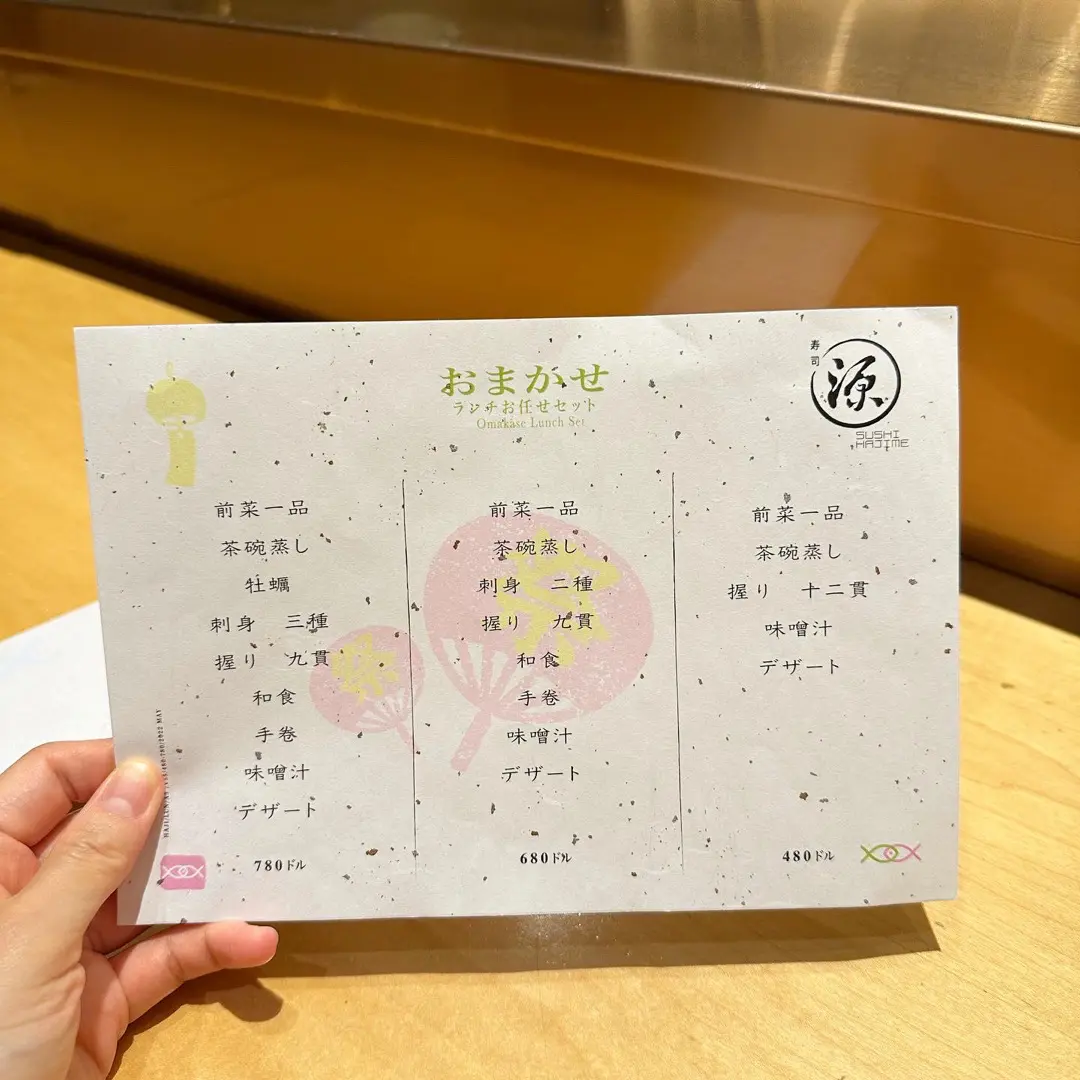 おまかせ
ランチお任せセット
Omakase Lunch Set
寿司
源
SUSHI
HAJIME
前菜一品
茶碗蒸し
牡蠣
刺身 三種
握り 九貫
和食
手巻
味噌汁
デザート
780ドル
前菜一品
茶碗蒸し
刺身 二種
握り 九貫
和食
手巻
味噌汁
デザート
680ドル
前菜一品
茶碗蒸し
握り 十二貫
味噌汁
デザート
480ドル
祭
祭